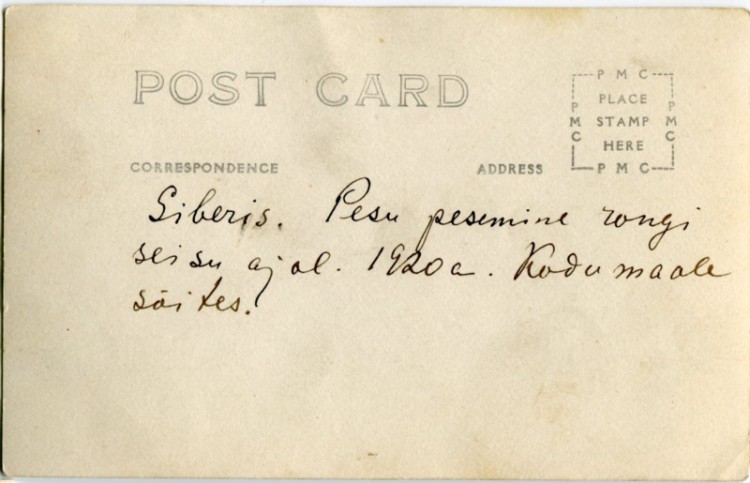 POST CARD
P M C
P PLACE P
M STAMP M
C HERE C
P M C
CORRESPONDENCE ADDRESS
Siberis. Pesu pesemine rongi
seisu ajal. 1920a. Kodumaale
sõites.